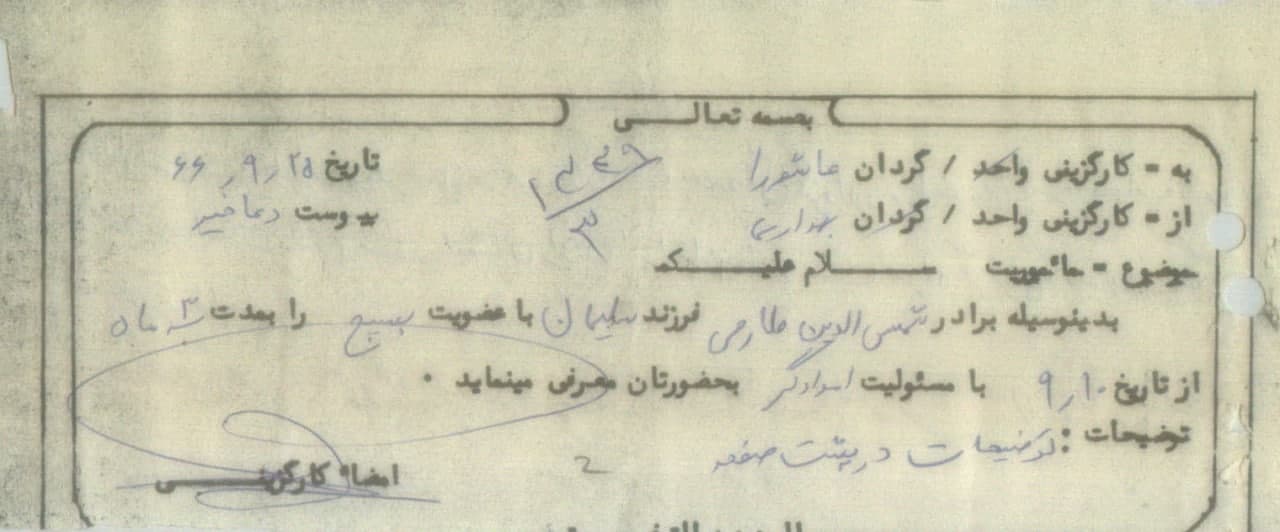 بسمه تعالی
به = کارگزینی واحد / گردان عاشورا تاریخ ۶۶,۹,۲۵
از = کارگزینی واحد / گردان بهداری پیوست
موضوع = مأموریت سلام علیکم
بدینوسیله برادر شمس الدین طارمی فرزند سلیمان با عضویت بسیج را بمدت ۳ ماه
از تاریخ ۹,۱۰ با مسئولیت امدادگر بحضورتان معرفی مینماید .
توضیحات : توضیحات در پشت صفحه
امضاء کارگزینی